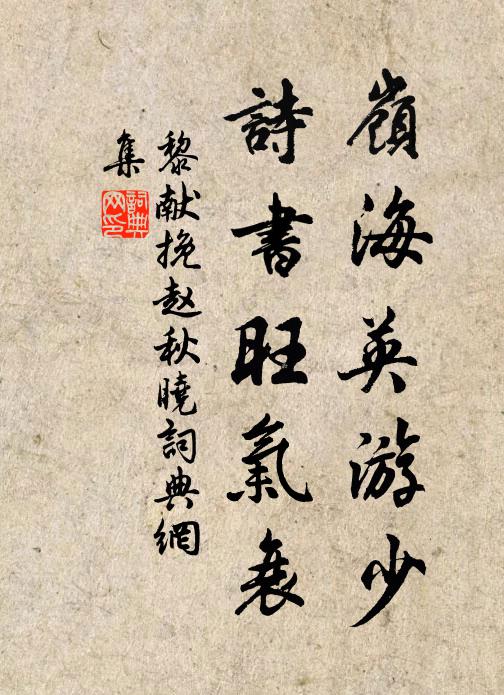 嶺海英游少
詩書旺氣衰
黎献挽赵秋曉詞典網
集
詞典網印